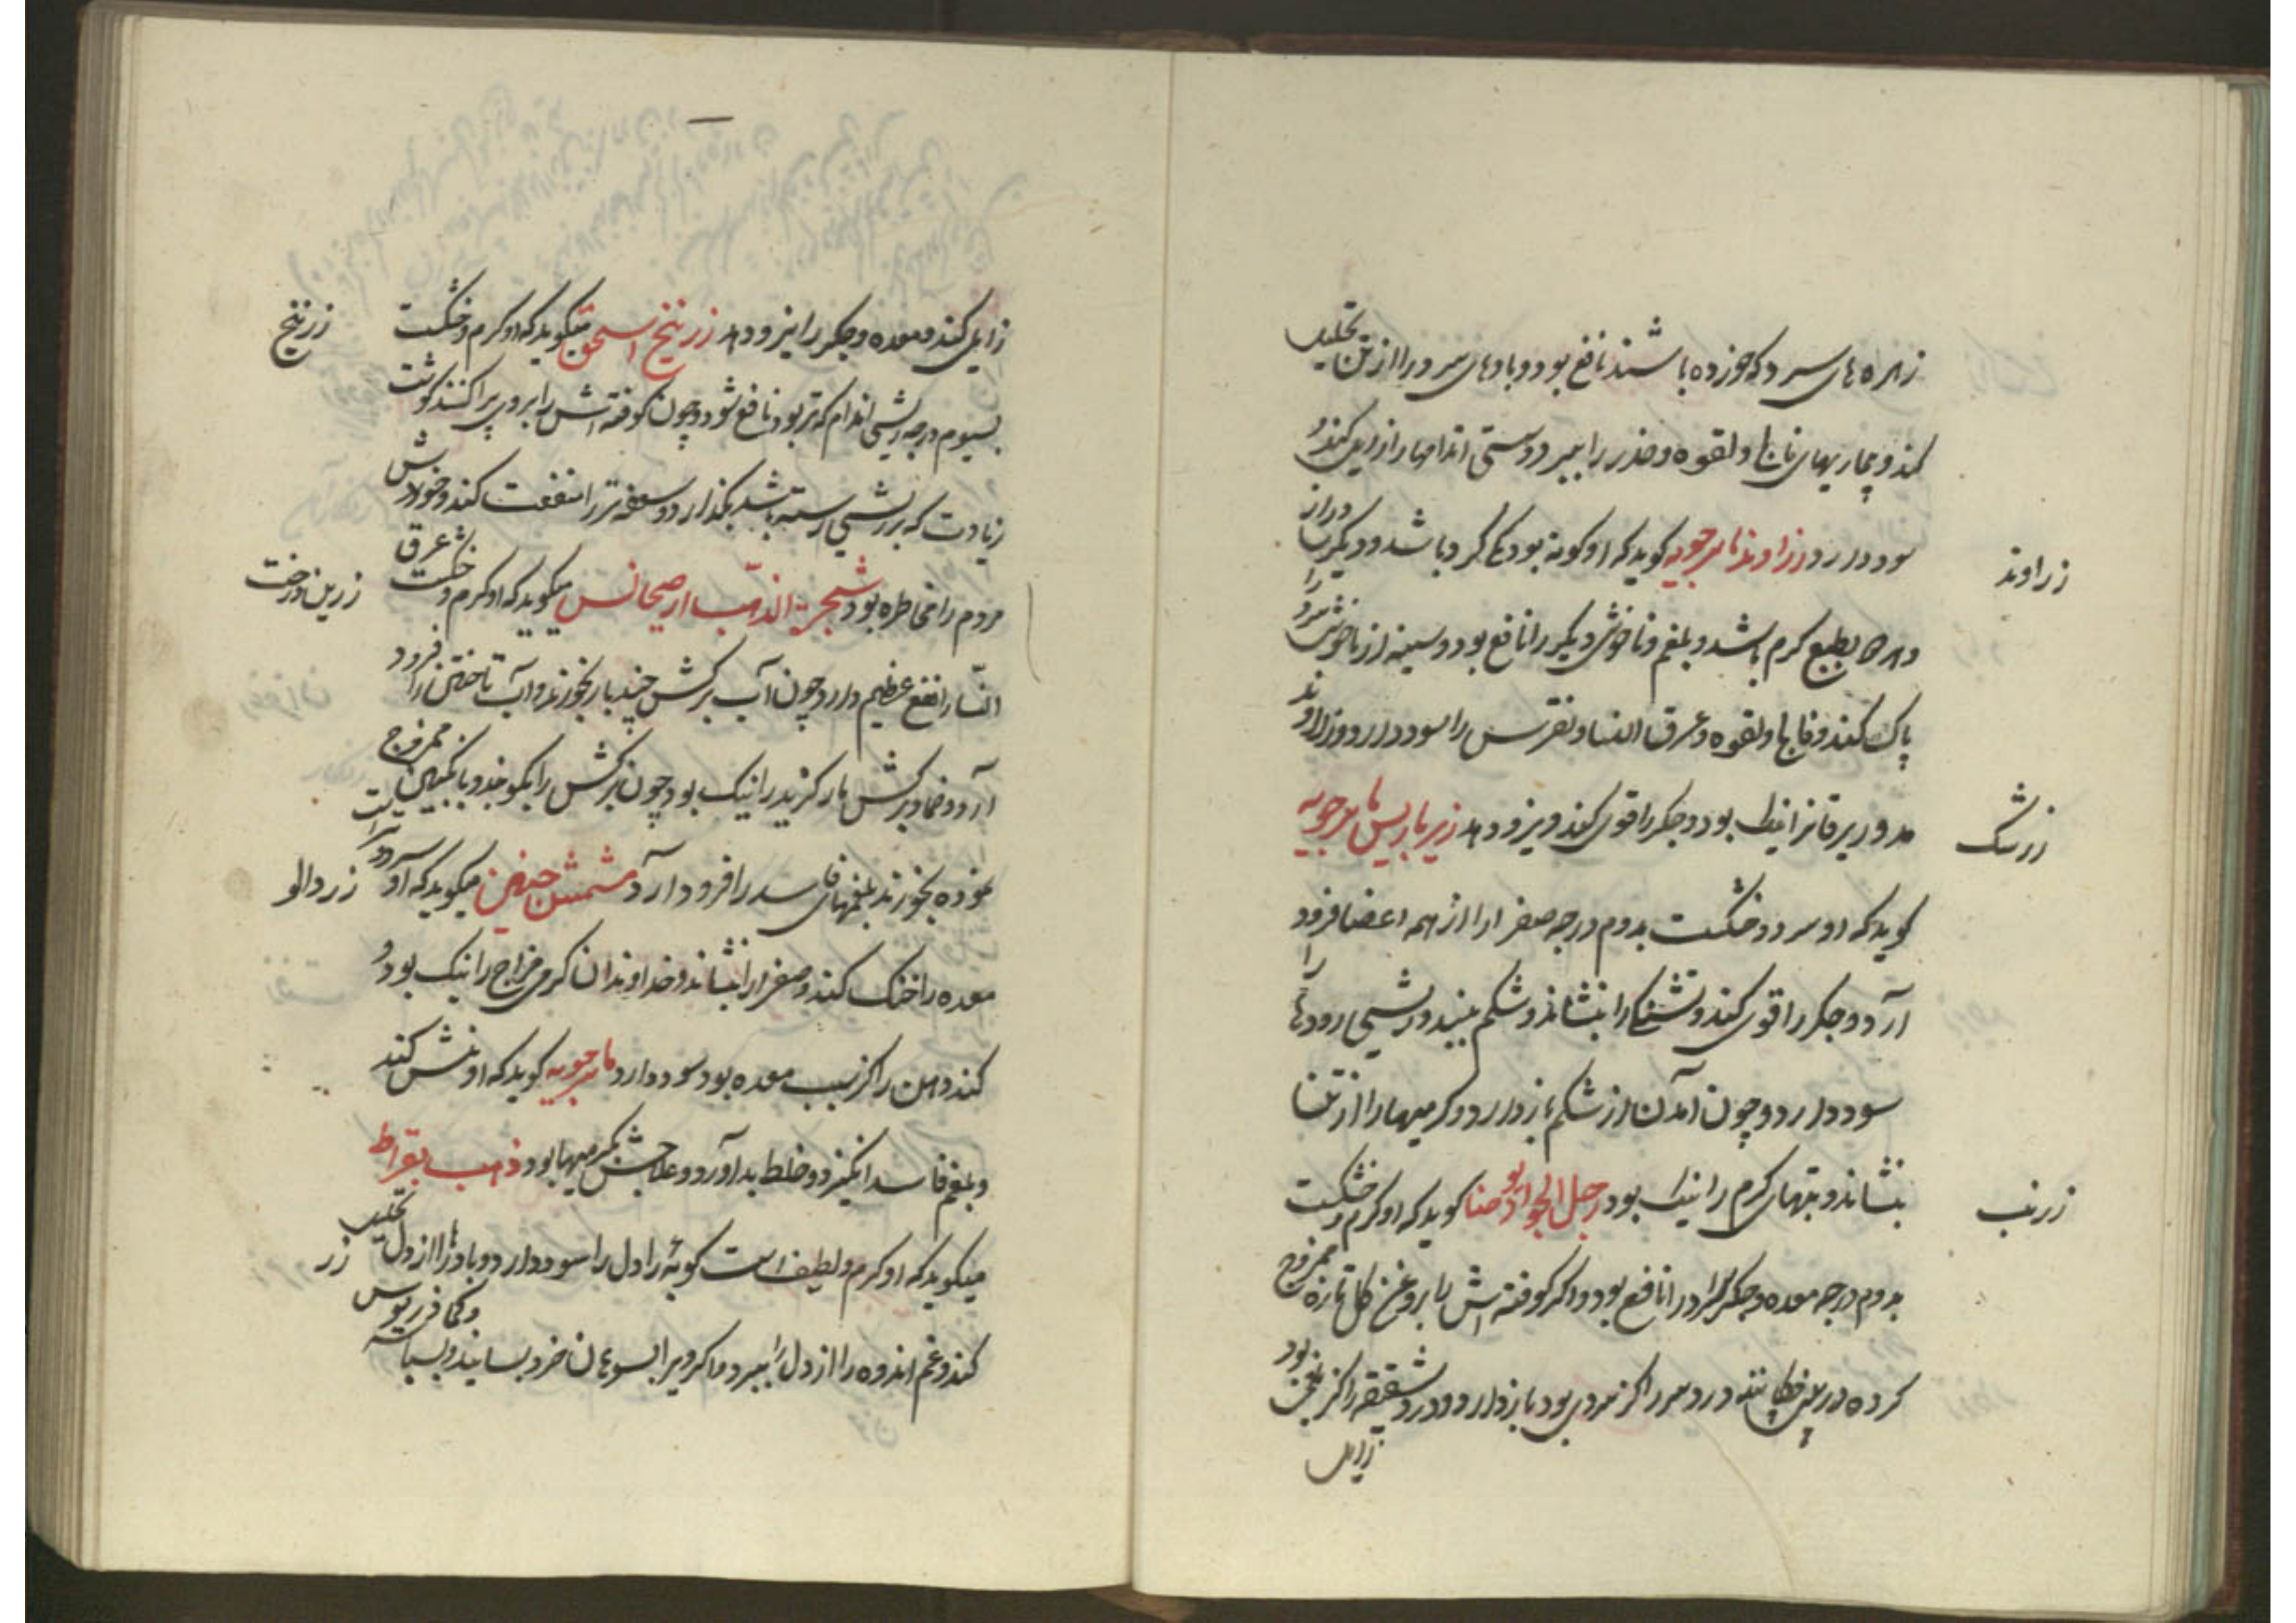 زهره های سرد که خورده باشند نافع بود و بادهای سرد را از تن تحلیل
کند و بیماریهای فالج و لقوه و خدر را ببرد و سستی اندامها را زایل کند و
زراوند
سود دارد زراوند ماسرجویه گوید که او گونه بود یکی گرد باشد و دیگر دراز
و هر دو بطبع گرم باشد و بلغم و ناخوشی دیگر را نافع بود و سینه از ناخوشی را
پاک کند و فالج و لقوه و عرق النسا و نقرس را سود دارد و زراوند
زرشک
مدور یرقانرا نیک بود و جگر را قوی کند و نیرو دهد زیرباریس ماسرجویه
گوید که او سرد و خشکست بدوم درجه صفرا را از همه اعضا فرود
آرد و جگر را قوی کند و تشنگی را بنشاند و شکم ببندد و ریشی رودها را
سود دارد و چون آمدن از شکم باز دارد و گرمیها را از تن
زرنب
بنشاند و تبهای گرم را نیک بود رجل الجراد یوحنا گوید که او گرم و خشکست
بدوم درجه معده و جگر سرد را نافع بود و اگر کوفته اش با روغن گل تازه ممزوج
کرده در بینی درد سر را کز سردی بود باز دارد و درد شقیقه را کز بلغم بود
زایل
زرنیخ
زایل کند و معده و جگر را نیرو دهد زرنیخ اسحق میگوید که او گرم و خشکست
بسیوم درجه ریشی اندام که تر بود نافع شود و چون کوفته اش را بروی پراکنند گوشت
زیادت که بر ریشی رسته باشد بگدازد و سعفه تر را منفعت کند و خوردنش
زرین درخت
مردم را مخاطره بود شجرة الذهب ارصیحانس میگوید که او گرم و خشکست عرق
النسا را نفع عظیم دارد و چون آب برگش چند بار بخورند و آب تاختن را فرود
آرد و ضماد برگش مار گزیده را نیک بود و چون برگش را بکوبند و با انگبین ممزوج
زردالو
نموده بخورند بلغمهای فاسد را فرود آرد مشمش حنین میگوید که او سرد و تر است
معده را خنک کند و صفرا را بنشاند و خداوندان گرمی مزاج را نیک بود و
کند دهن را کز سبب معده بود سود دارد ماسرجویه گوید که او منش کند
و بلغم فاسد انگیزد و خلط بد آورد و علاجش بود ذهب بقراط
زر
میگوید که او گرم و لطیف است کوبهٔ دل را سود دارد و بادها را از دل تحلیل
کند و غم اندوه را از دل ببرد و اگر ویرا بسوهان خرد بسایند و